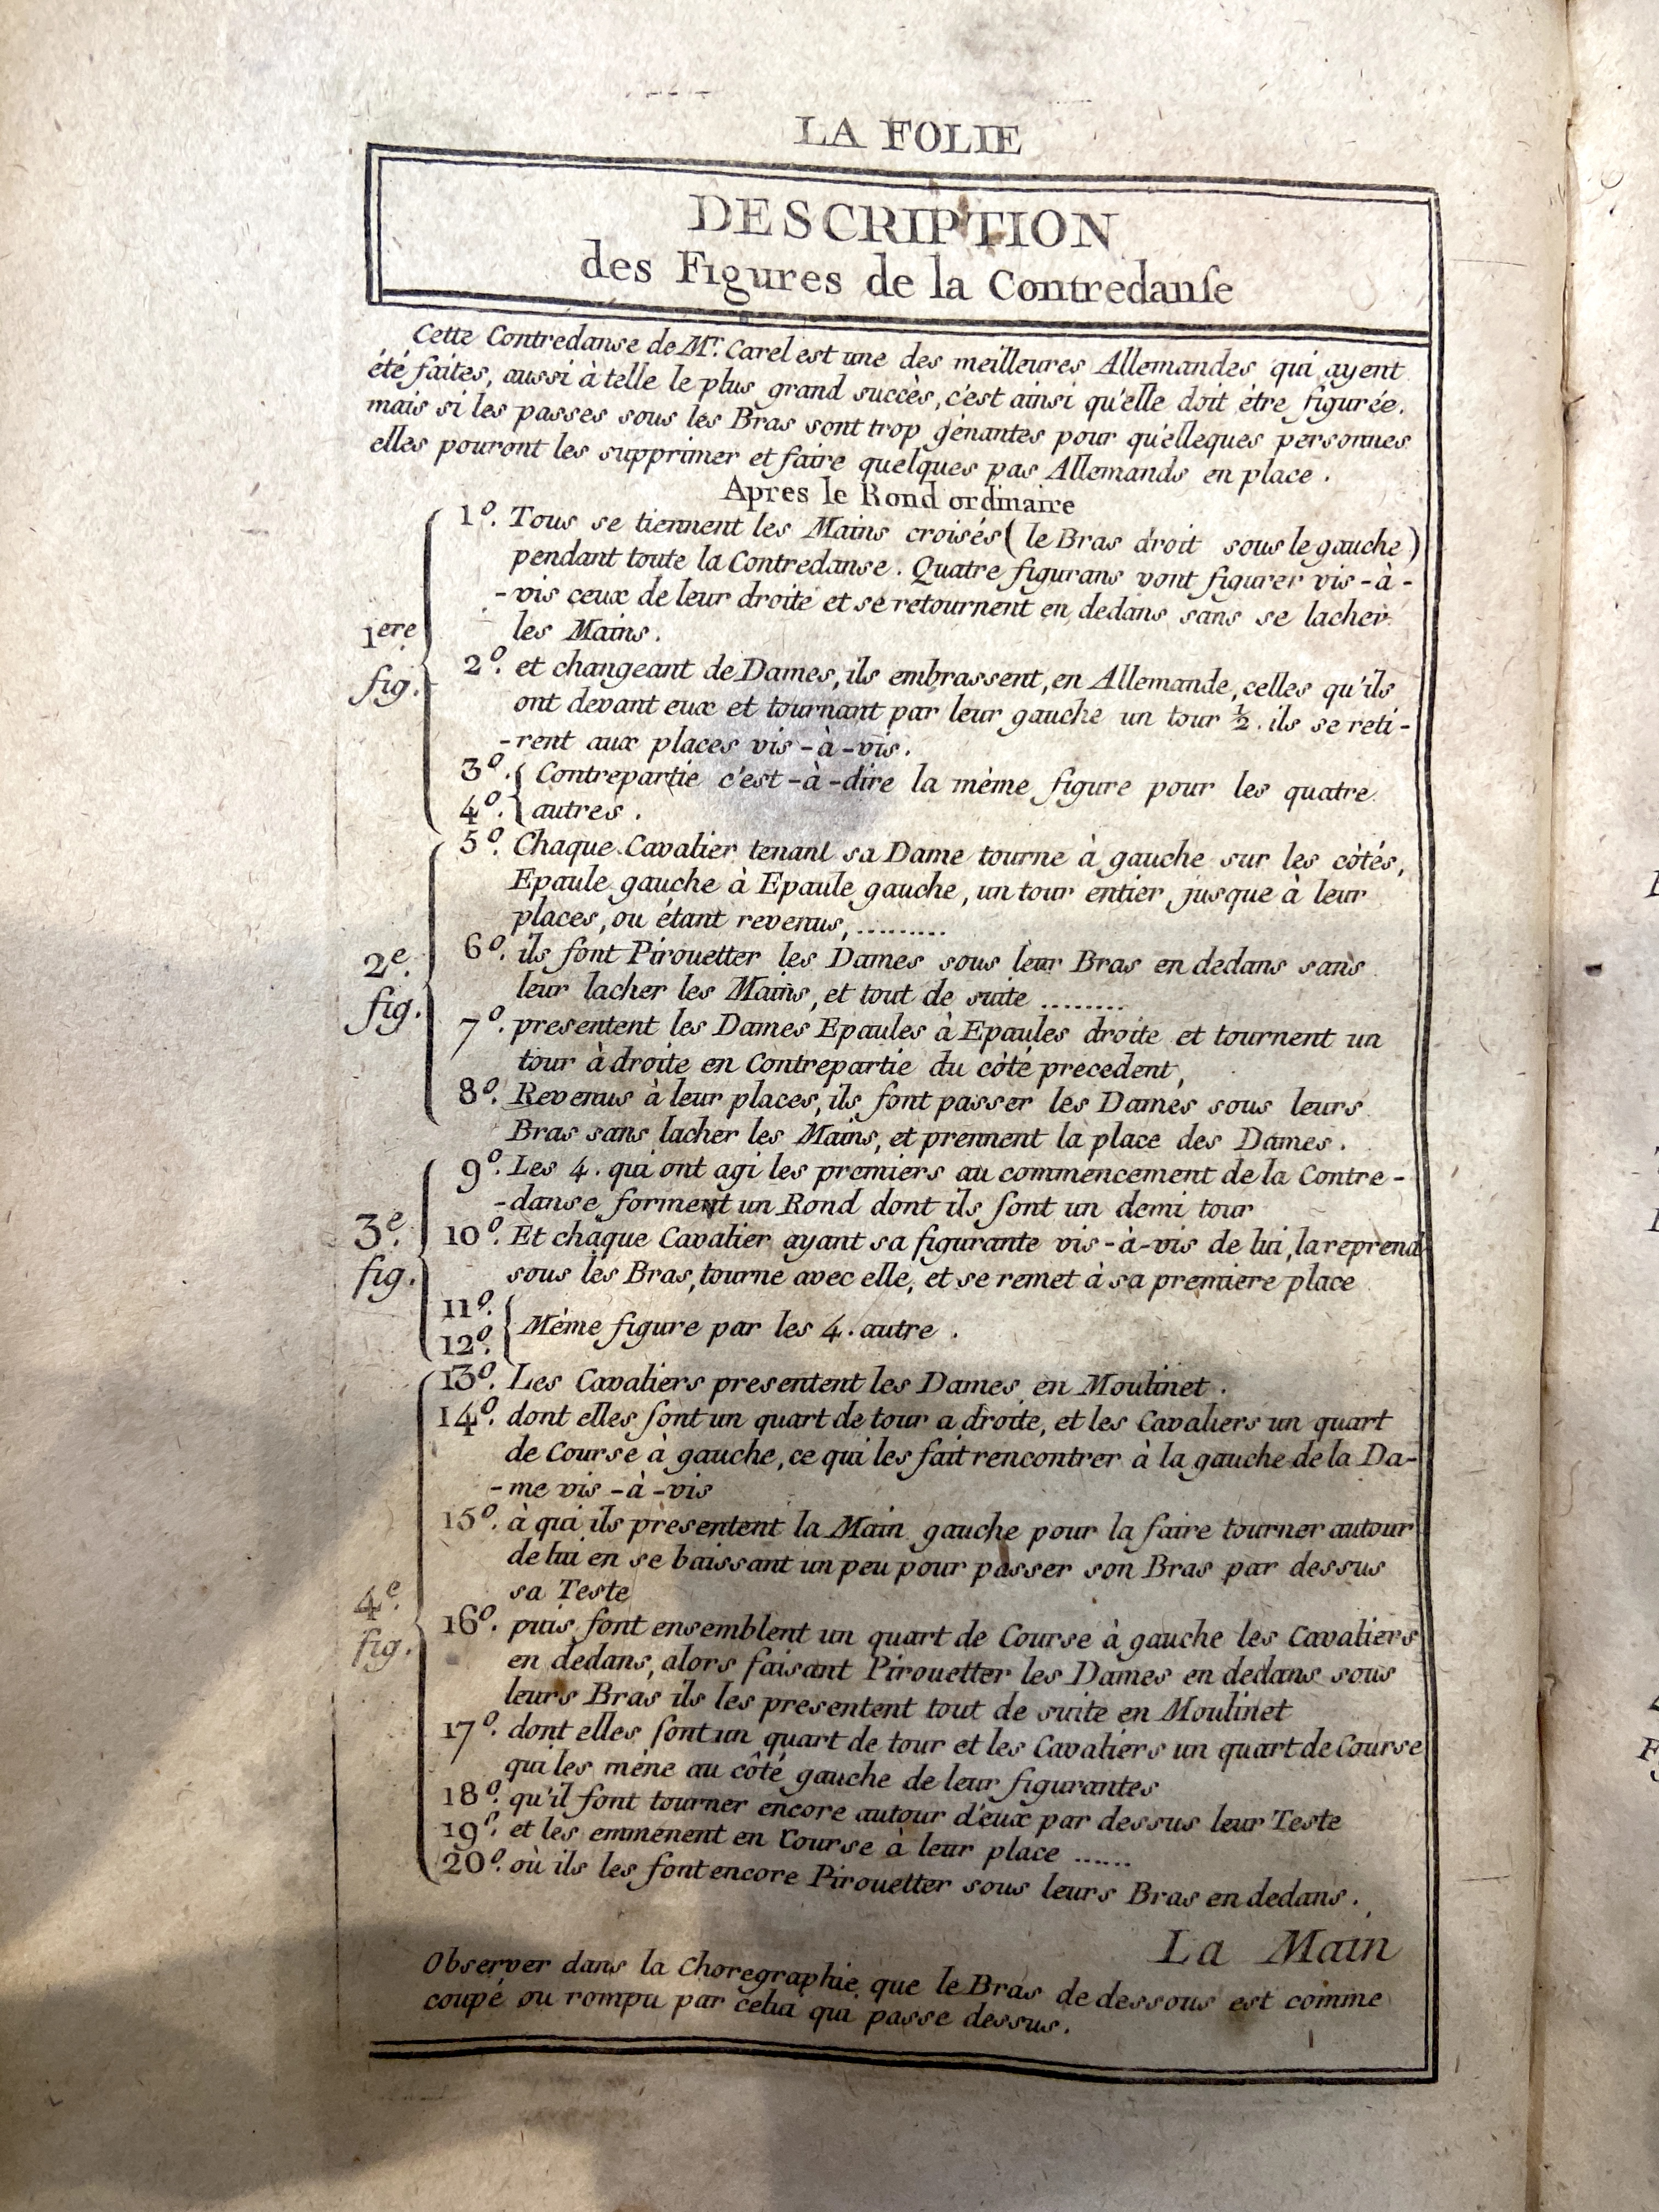 LA FOLIE
DESCRIPTION
des Figures de la Contredanſe
Cette Contredanse de Mr. Carel est une des meilleures Allemandes qui ayent
été faites, aussi à telle le plus grand succès, c'est ainsi qu'elle doit être figurée.
mais si les passes sous les Bras sont trop gênantes pour qu'elleques personnes
elles pouront les supprimer et faire quelques pas Allemands en place.
Apres le Rond ordinaire
1ere fig.
1º. Tous se tiennent les Mains croisés (le Bras droit sous le gauche)
pendant toute la Contredanse. Quatre figurans vont figurer vis-à-
-vis ceux de leur droite et se retournent en dedans sans se lacher
les Mains.
2º. et changeant de Dames, ils embrassent, en Allemande, celles qu'ils
ont devant eux et tournant par leur gauche un tour ½. ils se reti-
-rent aux places vis-à-vis.
3º. { Contrepartie c'est-à-dire la mème figure pour les quatre
4º. { autres.
2e. fig.
5º. Chaque Cavalier tenant sa Dame tourne à gauche sur les côtés,
Epaule gauche à Epaule gauche, un tour entier, jusque à leur
places, ou étant revenus, .........
6º. ils font Pirouetter les Dames sous leur Bras en dedans sans
leur lacher les Mains, et tout de suite ........
7º. presentent les Dames Epaules à Epaules droite et tournent un
tour à droite en Contrepartie du côté precedent,
8º. Revenus à leur places, ils font passer les Dames sous leurs
Bras sans lacher les Mains, et prennent la place des Dames.
3e. fig.
9º. Les 4. qui ont agi les premiers au commencement de la Contre-
-danse forment un Rond dont ils ſont un demi tour
10º. Et chaque Cavalier ayant sa figurante vis-à-vis de lui, la reprend
sous les Bras, tourne avec elle, et se remet à sa premiere place
11º.
12º. { Mème figure par les 4. autre.
4e. fig.
13º. Les Cavaliers presentent les Dames en Moulinet.
14º. dont elles ſont un quart de tour a droite, et les Cavaliers un quart
de Course à gauche, ce qui les fait rencontrer à la gauche de la Da-
-me vis-à-vis
15º. à qui ils présentent la Main gauche pour la faire tourner autour
de lui en se baissant un peu pour passer son Bras par dessus
sa Teste
16º. puis font ensemblent un quart de Course à gauche les Cavaliers
en dedans, alors faisant Pirouetter les Dames en dedans sous
leurs Bras ils les presentent tout de suite en Moulinet
17º. dont elles ſont un quart de tour et les Cavaliers un quart de Course
qui les mène au côté gauche de leur figurantes
18º. qu'il font tourner encore autour d'eux par dessus leur Teste
19º. et les emmènent en Course à leur place ......
20º. où ils les font encore Pirouetter sous leurs Bras en dedans.
La Main
Observer dans la Choregraphie que le Bras de dessous est comme
coupé ou rompu par celui qui passe dessus.